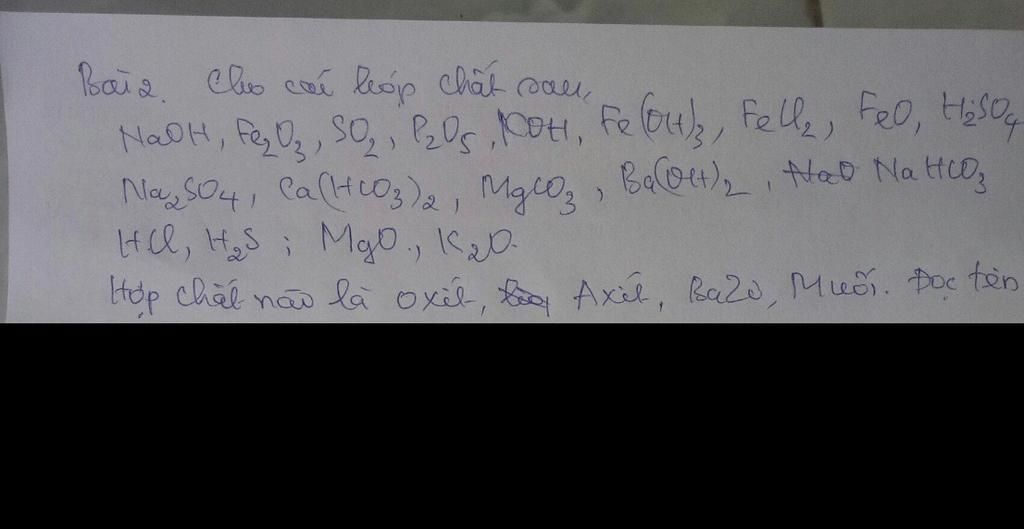 Bài 2. Cho các hợp chất sau,
NaOH, Fe₂O₃, SO₂, P₂O₅, KOH, Fe(OH)₃, FeCl₂, FeO, H₂SO₄
Na₂SO₄, Ca(HCO₃)₂, MgCO₃, Ba(OH)₂, NaHCO₃
HCl, H₂S; MgO., K₂O.
Hợp chất nào là oxit, Axit, Bazơ, Muối. Đọc tên